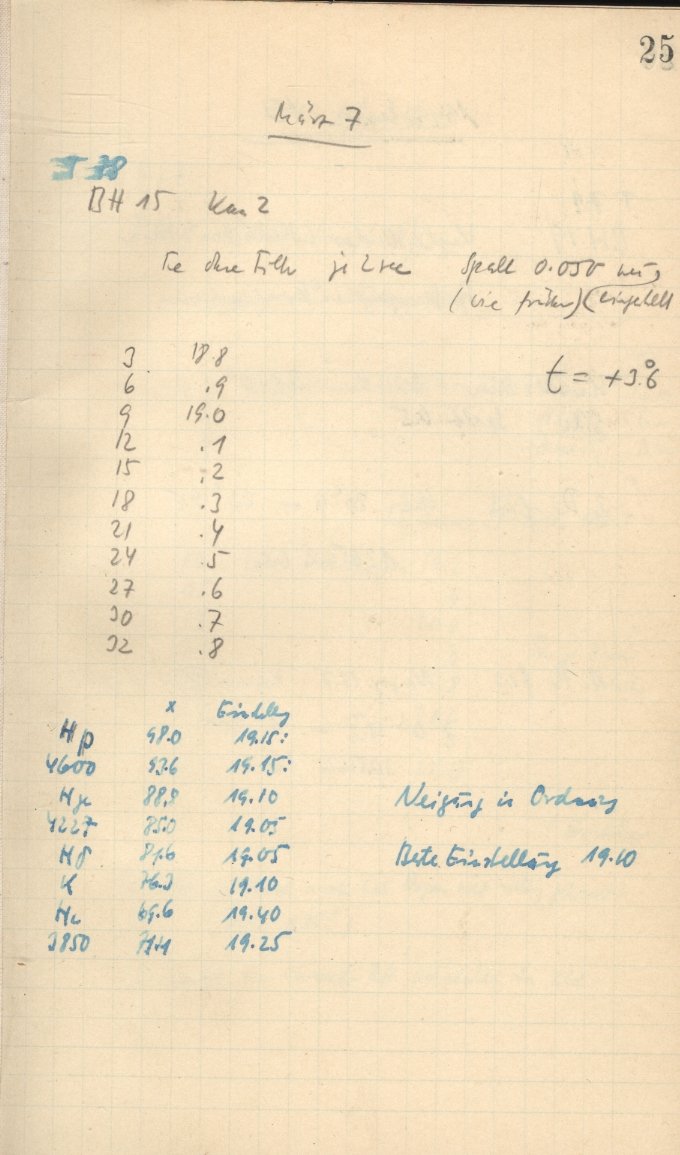 25
März 7
I 38
BH 15 Kam 2
Fe ohne Filter je 2 sec Spalt 0.050 neu
(wie früher) (eingestellt
t = +3°.6
3 18.8
6 .9
9 19.0
12 .1
15 .2
18 .3
21 .4
24 .5
27 .6
30 .7
32 .8
x Einstellg
Hβ 98.0 19.15:
4600 93.6 19.15:
Hγ 88.8 19.10
4227 85.0 19.05
Hδ 81.6 19.05
K 76.3 19.10
69.6 19.40
3850 19.25
Neigung in Ordnung
Beste Einstellung 19.10